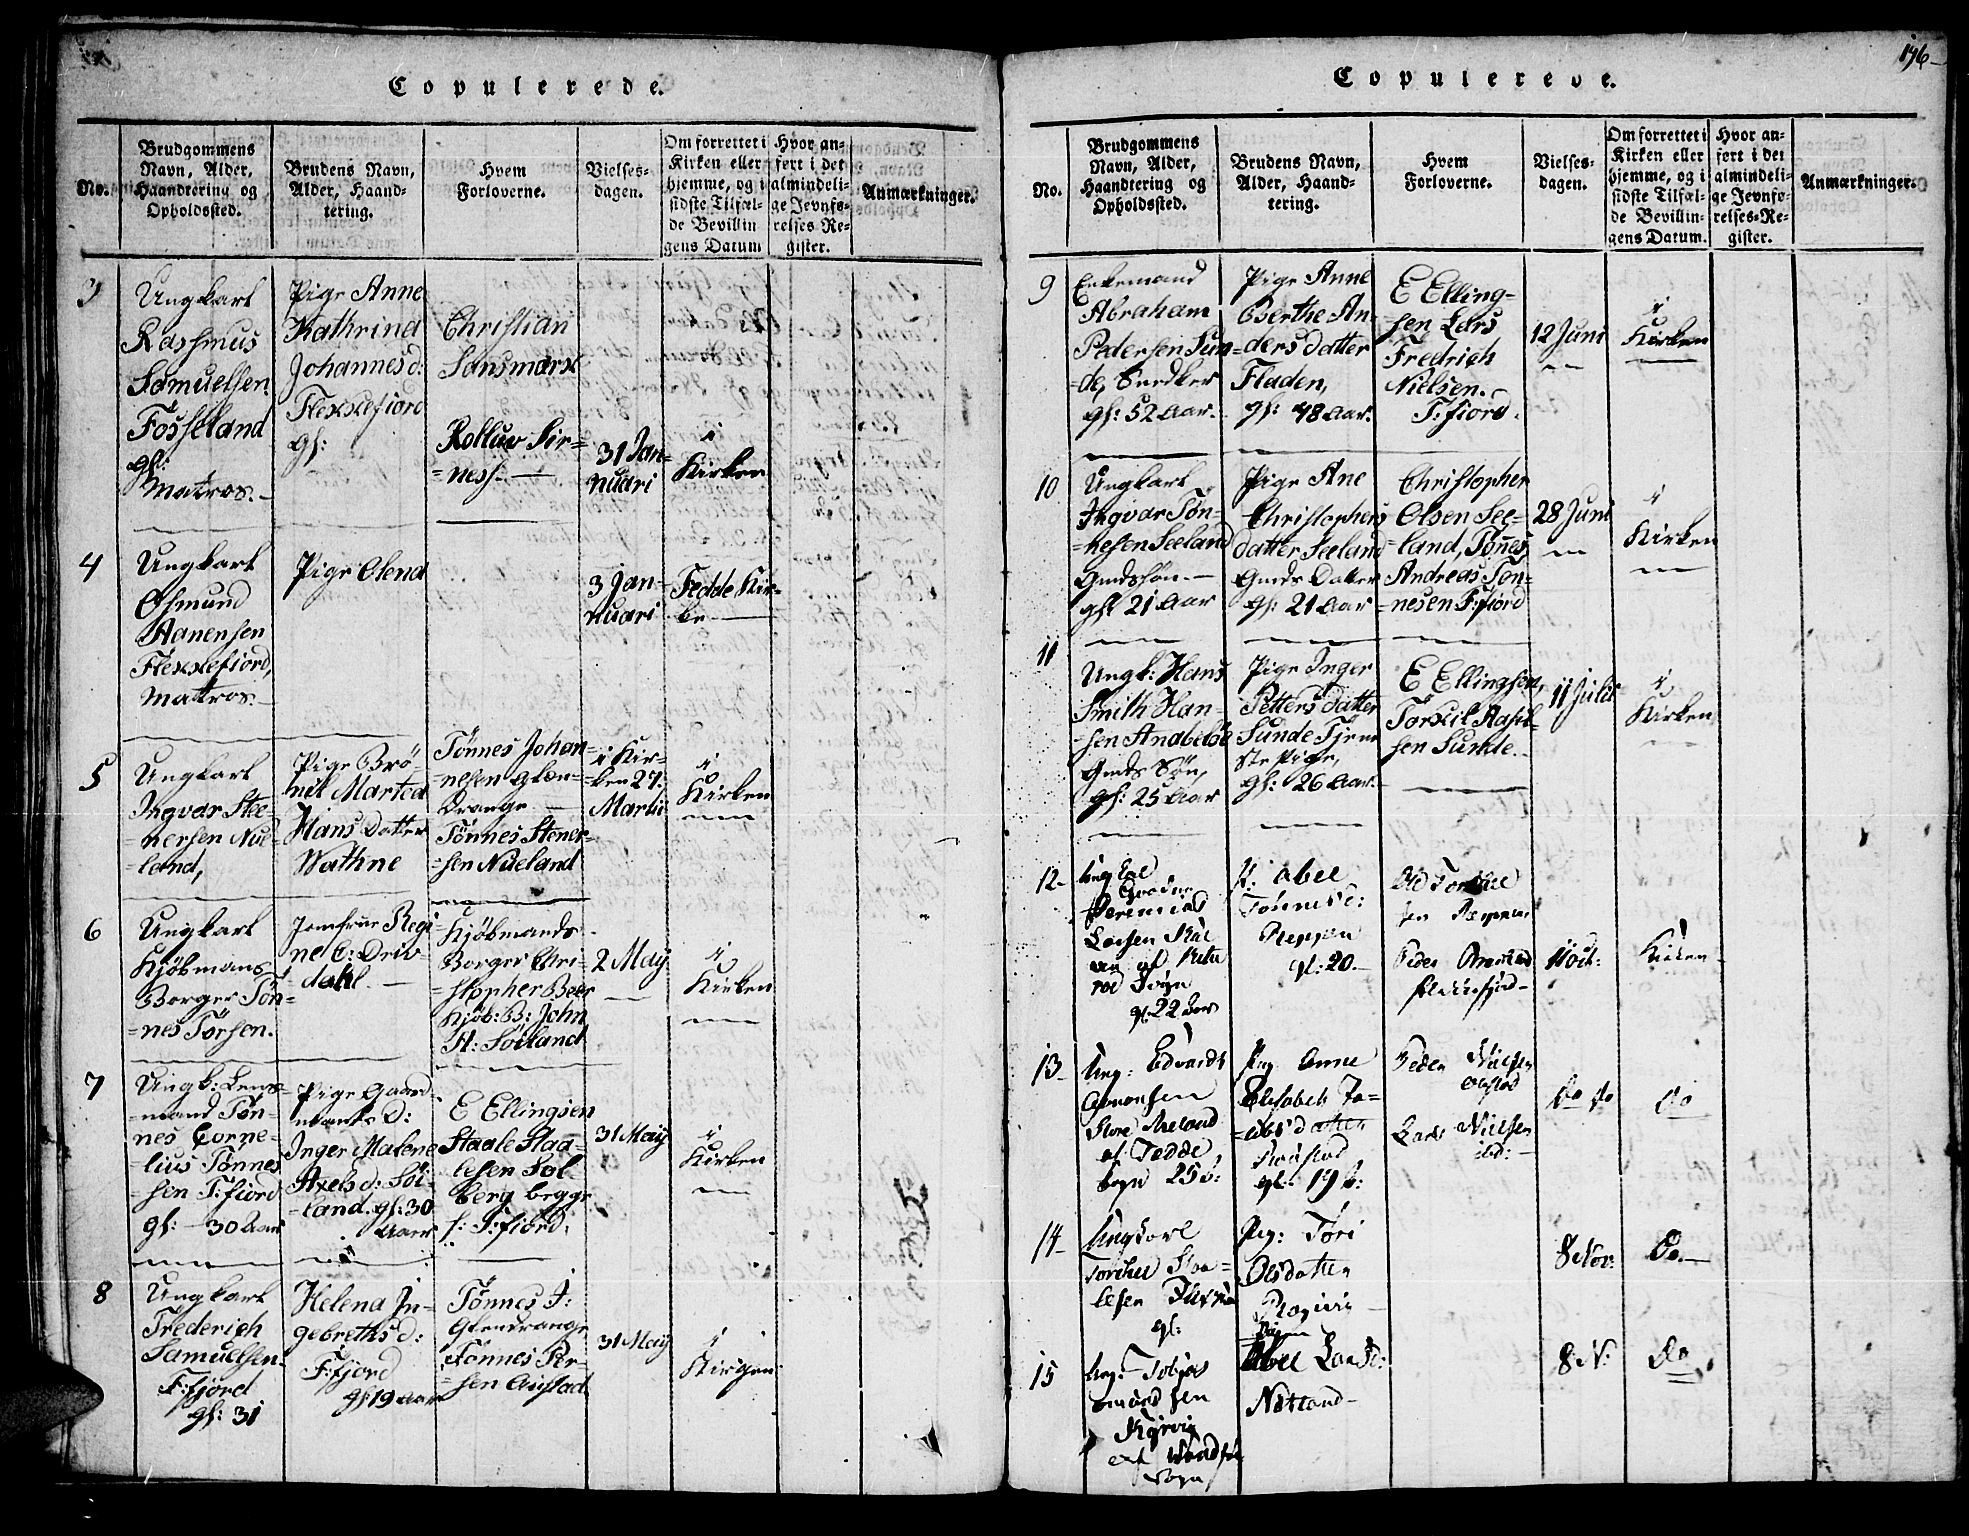 Copulerede.
No.
Brudgommens
Navn, Alder,
Haandtering og
Opholdssted.
Brudens Navn,
Alder, Haand-
tering.
Hvem
Forloverne.
Vielses-
dagen.
Om forrettet i
Kirken eller
hjemme, og i
sidste Tilfæl-
de Bevillin
gens Datum
Hvor an-
ført i det
almindeli-
ge Jevnfø-
relses-Re-
gister.
Anmærkninger.
3
Ungkarl
Rasmus
Samuelsen
Fosseland
gl:
Matros.
Pige Anne
Kathrina
Johannesd:
Flekkefiord
gl:
Christian
Sansmark
Rolluv Sir=
=nes.
31 Jan=
nuari
i
Kirken
4
Ungkarl
Osmund
Aanensen
Flekkefiord,
Matros.
Pige Olena
3 Jan=
nuari
Fedde Kir=
ke
5
Ungkarl
Ingvar Stee=
nersen Nue=
=land,
Pige Brö=
nil Martea
Hans Datter
Wathne
Tönnes Johan=
=nesen Glen=
Drange
Tönnes Stener=
=sen Nueland
i Kir=
ken 27.
Martii
i
Kirken
6
Ungkarl
Kjöbmans
Borger Tön=
=nes Törsen.
Jomfrue Regi=
ne C: Driv=
dahl.
Kjöbmands
Borger Chri=
=stopher Beer
Kjöb: B: John
H: Söiland
2 May
i
Kirken
7
Ungk: Lens=
=mand Tön=
nes Corne=
lius Tönnes=
sen F:fiord
gl: 30 Aar
Pige Gaard=
mands D:
Inger Malene
Axels d: Söi=
=land. gl: 30
Aar
E Ellingsen
Staale Staa=
lesen Sol
berg begge
f: F:fiord.
31 May
i
Kirken
8
Ungkarl
Frederich
Samuelsen
F:fjord
gl: 31
Helena In=
gebreths d:
F:fjord
gl 19 Aar
Tönnes J:
Glendrange
Tönnes Per=
=sen Austad
31 May
i
Kirgen
196
Copulerede.
No.
Brudgommens
Navn, Alder,
Haandtering og
Opholdssted.
Brudens Navn,
Alder, Haand-
tering.
Hvem
Forloverne.
Vielses-
dagen.
Om forrettet i
Kirken eller
hjemme, og i
sidste Tilfæl-
de Bevillin-
gens Datum.
Hvor an-
ført i det
almindeli-
ge Jevnfø-
relses-Re-
gister.
Anmærkninger.
9
Enkemand
Abraham
Pedersen Sun=
=de, Snedker
gl: 52 Aar.
Pige Anne
Berthe An=
=ders datter
Fladen,
gl: 48 Aar.
E Elling=
=sen Lars
Fredrich
Nielsen.
F:fiord.
12 Juni
i
Kirken
10
Ungkarl
Ingvar Tön=
=nesen Seeland
Gmds sön
gl: 21 Aar
Pige Ane
Christophers
datter Seeland
Gmds Datter
gl: 21 Aar
Christopher
Olsen See=
=land, Tönnes
Andreas Tön=
=nesen F:fiord
28 Juni
i
Kirken
11
Ungk: Hans
Smith Han=
=sen Anabelöe
Gmds Sön,
gl: 25 Aar
Pige Inger
Petters datter
Sunde Tjene
ste Pige,
gl: 26 Aar.
E Ellingsen,
Torkil Aasil=
sen Sunde.
11 Julii
i
Kirken
12
Ungkal
Jeremias
Larsen
gl. 22 Aar
P: Abel
Tönnesd:
Reppen
gl: 20.
Old Torkel
sen Reppen
Peder
Flekkefjord
11 Oct:
Kirken
13
Ung: Edvardt
Store
af Fedde
Sogn 25 A:
Pig Anne
Elisabeth Ja=
=cobsdatter
gl. 19 A:
Peder Nielsen
Lars Nielsen
ibd:
do do
do
14
Ungkarl
Torkel Staa=
lesen
gl:
Pig: Töri
Olsdatter
8 Nov:
do.
15
Ung: Tobias
sen
af
Sogn
Abel Larsd:
Netland
8: N:
do